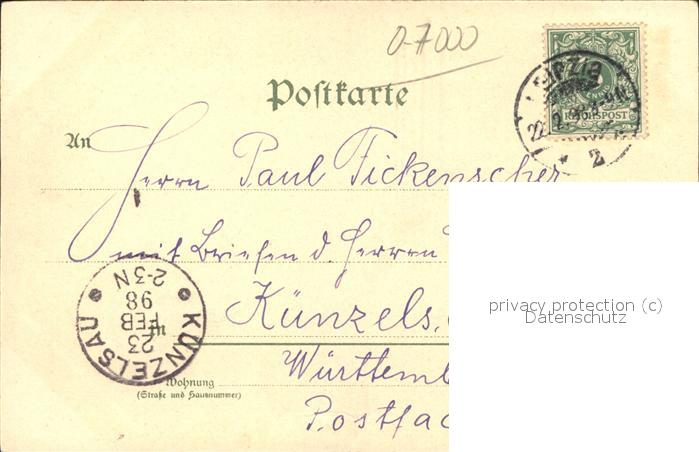 0-7000
LEIPZIG
REICHSPOST
22.2.
* 2
Postkarte
An
Herrn Paul Fickenscher
mit Briefen d. Herren
Künzels
in
Württemb
Postfac
Wohnung
(Straße und Hausnummer)
KÜNZELSAU
23
FEB
98
2-3N
privacy protection (c)
Datenschutz